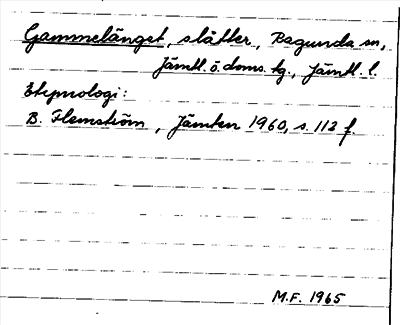 Gammelänget, slåtter, Ragunda sn,
Jämtl. ö. doms. tg., Jämtl. l.
Etymologi:
B. Flemström, Jämten 1960, s. 112 f.
M.F. 1965